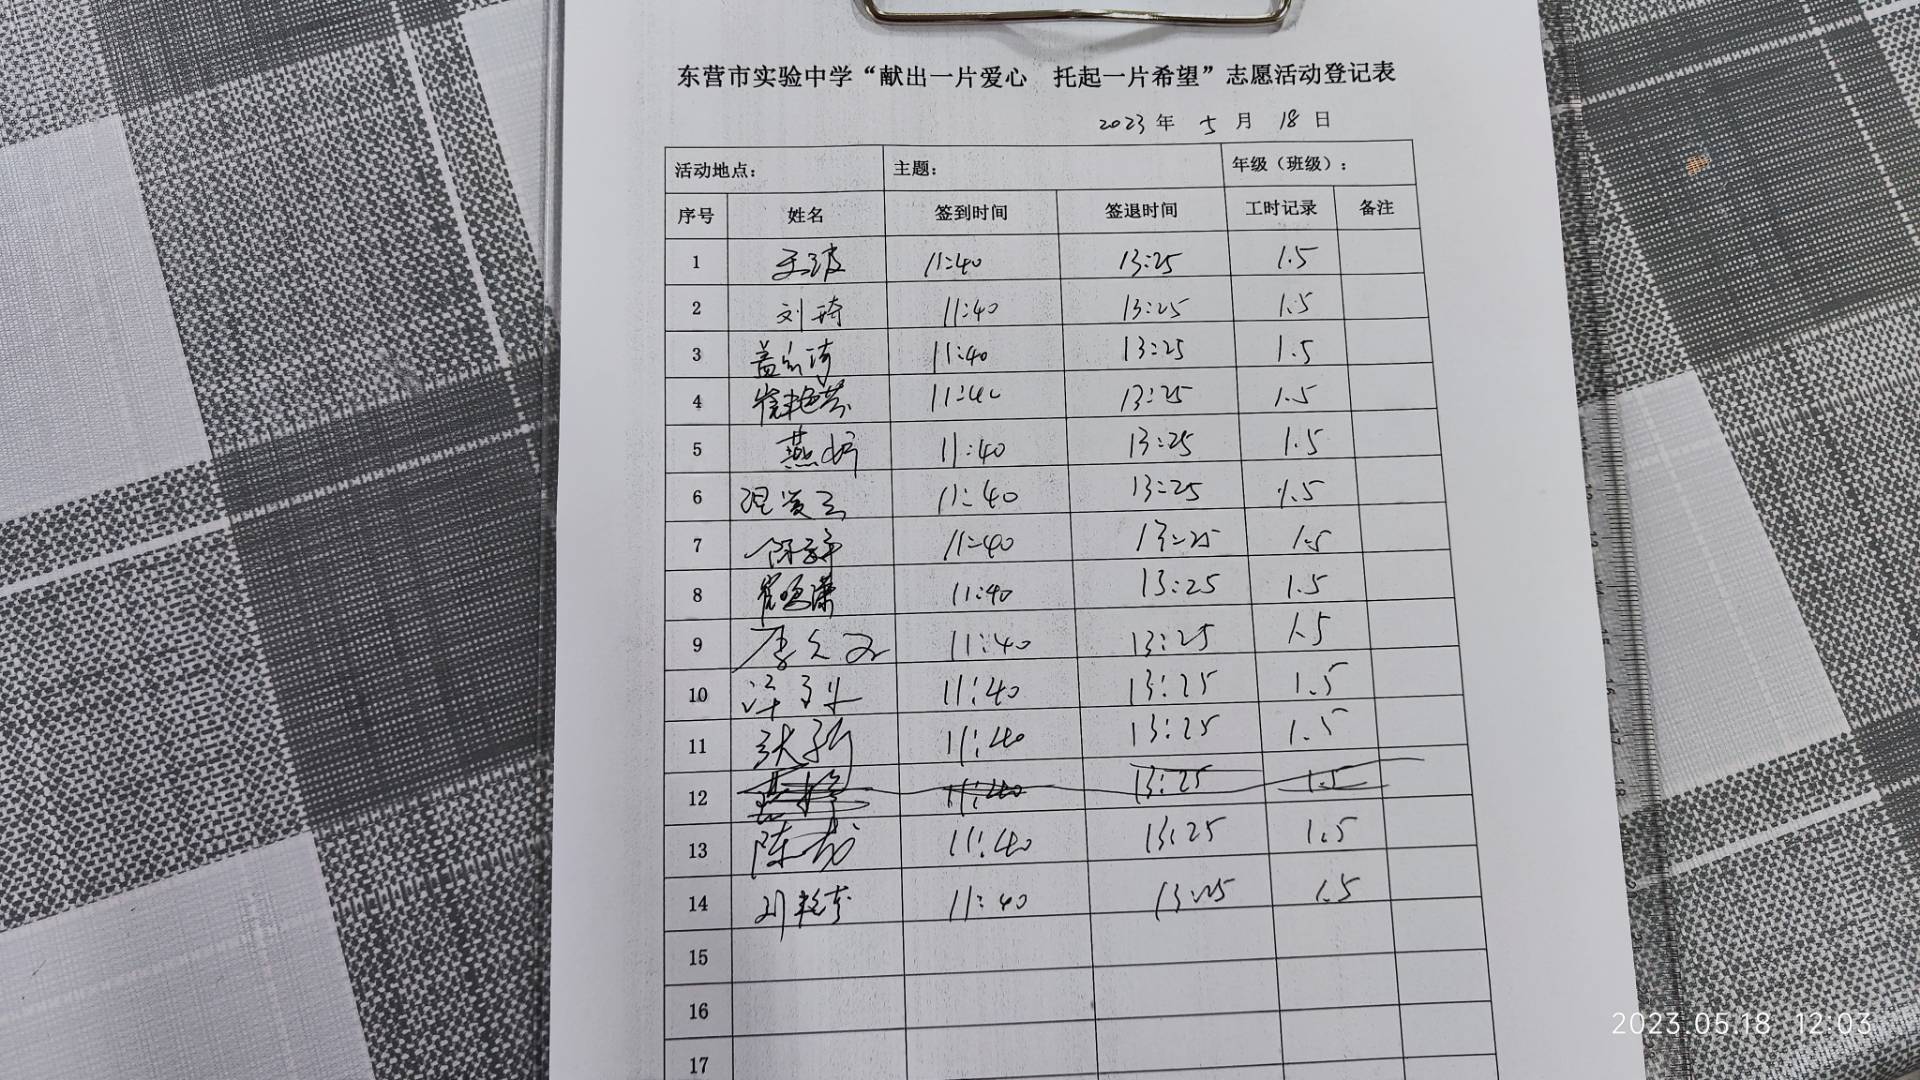 东营市实验中学“献出一片爱心 托起一片希望”志愿活动登记表
2023年 5月 18日
活动地点： 主题： 年级（班级）：
序号 姓名 签到时间 签退时间 工时记录 备注
1 王波 11:40 13:25 1.5
2 刘琦 11:40 13:25 1.5
3 盖 11:40 13:25 1.5
4 崔艳芬 11:40 13:25 1.5
5 燕妮 11:40 13:25 1.5
6 11:40 13:25 1.5
7 11:40 13:25 1.5
8 崔 11:40 13:25 1.5
9 李文 11:40 13:25 1.5
10 11:40 13:25 1.5
11 张 11:40 13:25 1.5
12 11:40 13:25 1.5
13 陈 11:40 13:25 1.5
14 刘艳 11:40 13:25 1.5
15
16
17
2023.05.18 12:03